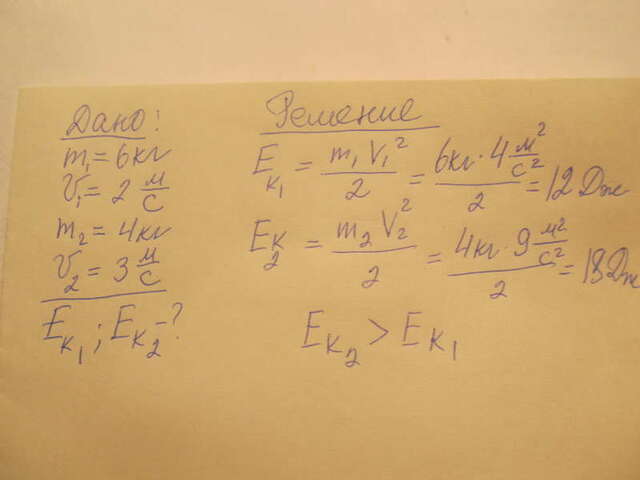 Дано:
m₁ = 6кг
V₁ = 2 м/с
m₂ = 4кг
V₂ = 3 м/с
Eк₁; Eк₂ - ?
Решение
Eк₁ = m₁V₁²/2 = 6кг · 4 м²/с² / 2 = 12 Дж
Eк₂ = m₂V₂²/2 = 4кг · 9 м²/с² / 2 = 18 Дж
Eк₂ > Eк₁